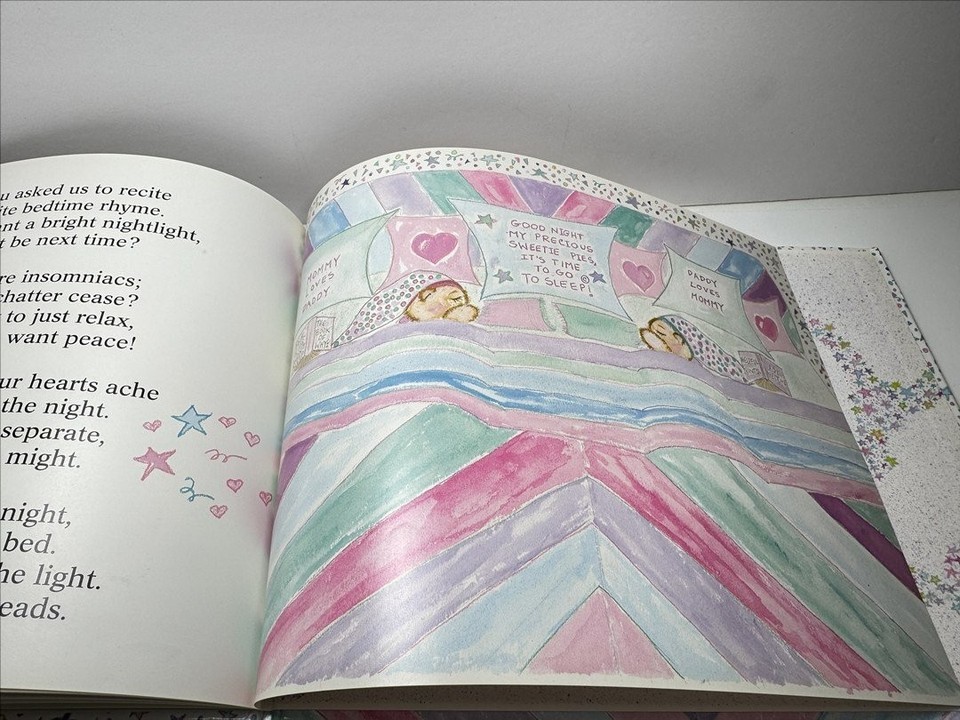 u asked us to recite
ite bedtime rhyme.
nt a bright nightlight,
t be next time?
re insomniacs;
chatter cease?
to just relax,
want peace!
ur hearts ache
the night.
separate,
might.
night,
bed.
he light.
eads.
MOMMY
LOVES
DADDY
GOOD NIGHT
MY PRECIOUS
SWEETIE PIES,
IT'S TIME
TO GO
TO SLEEP!
DADDY
LOVES
MOMMY